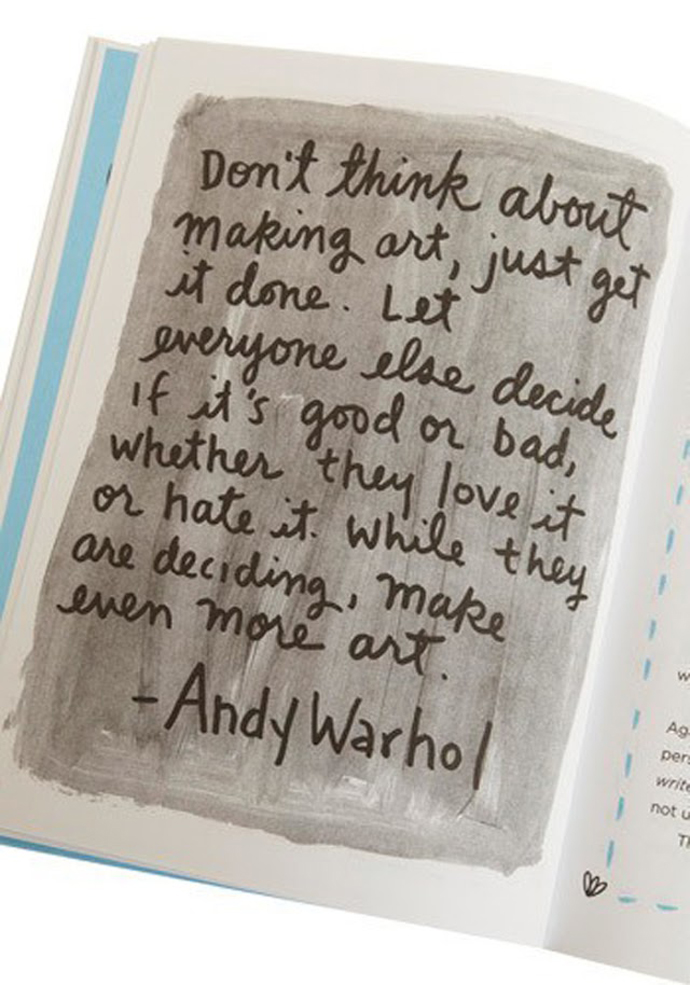 Don't think about
making art, just get
it done. Let
everyone else decide
if it's good or bad,
whether they love it
or hate it. while they
are deciding, make
even more art.
- Andy Warhol
write
not u